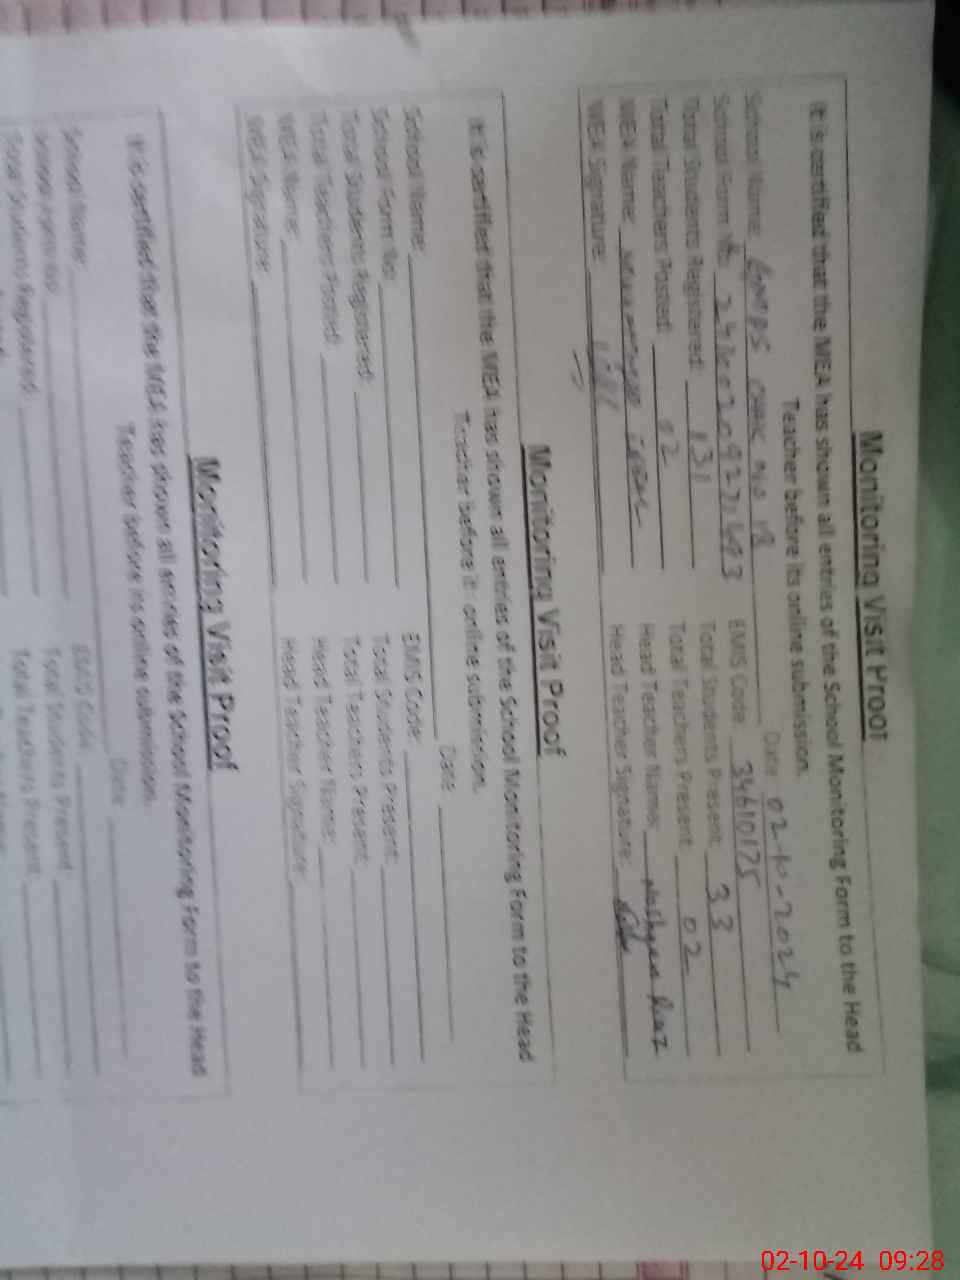 Monitoring Visit Proof
It is certified that the MEA has shown all entries of the School Monitoring Form to the Head
Teacher before its online submission.
Date 02-10-2024
School Name: GMPS CHAK NO
EMIS Code: 34610175
School Form No:
Total Students Present: 33
Total Students Registered: 131
Total Teachers Present: 02
Total Teachers Posted: 02
Head Teacher Name:
MEA Name:
Head Teacher Signature:
MEA Signature:
Monitoring Visit Proof
It is certified that the MEA has shown all entries of the School Monitoring Form to the Head
Teacher before it online submission.
Date
School Name:
EMIS Code:
School Form No:
Total Students Present:
Total Students Registered:
Total Teachers Present:
Total Teachers Posted:
Head Teacher Name:
MEA Name:
Head Teacher Signature:
MEA Signature:
Monitoring Visit Proof
It is certified that the MEA has shown all entries of the School Monitoring Form to the Head
Teacher before its online submission.
Date
School Name:
EMIS Code:
School Form No:
Total Students Present
Total Students Registered:
Total Teachers Present
02-10-24 09:28